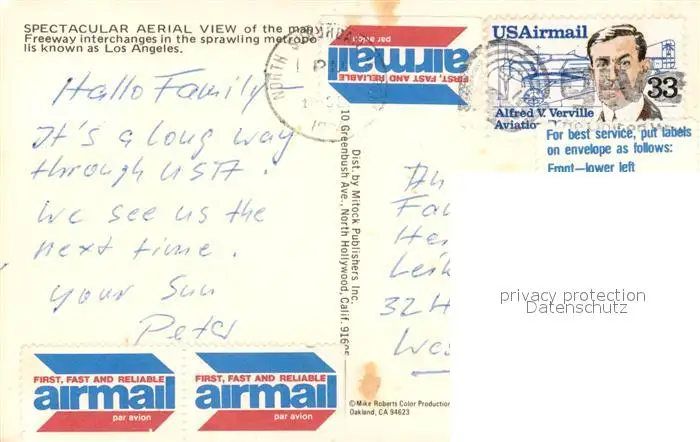 SPECTACULAR AERIAL VIEW of the many
Freeway interchanges in the sprawling metropo
lis known as Los Angeles.
Hallo Family -
It's a long way
through USA.
We see us the
next time.
Your Sun
Peter
FIRST, FAST AND RELIABLE
airmail
par avion
FIRST, FAST AND RELIABLE
airmail
par avion
Dist. by Mitock Publishers Inc.
10 Greenbush Ave., North Hollywood, Calif. 91605
FIRST, FAST AND RELIABLE
airmail
par avion
NORTH
PM
USAirmail
33
Alfred V. Verville
Aviatio
For best service, put labels
on envelope as follows:
Front—lower left
An
Fam
Her
Leik
32 H
Wes
privacy protection
Datenschutz
©Mike Roberts Color Production
Oakland, CA 94623